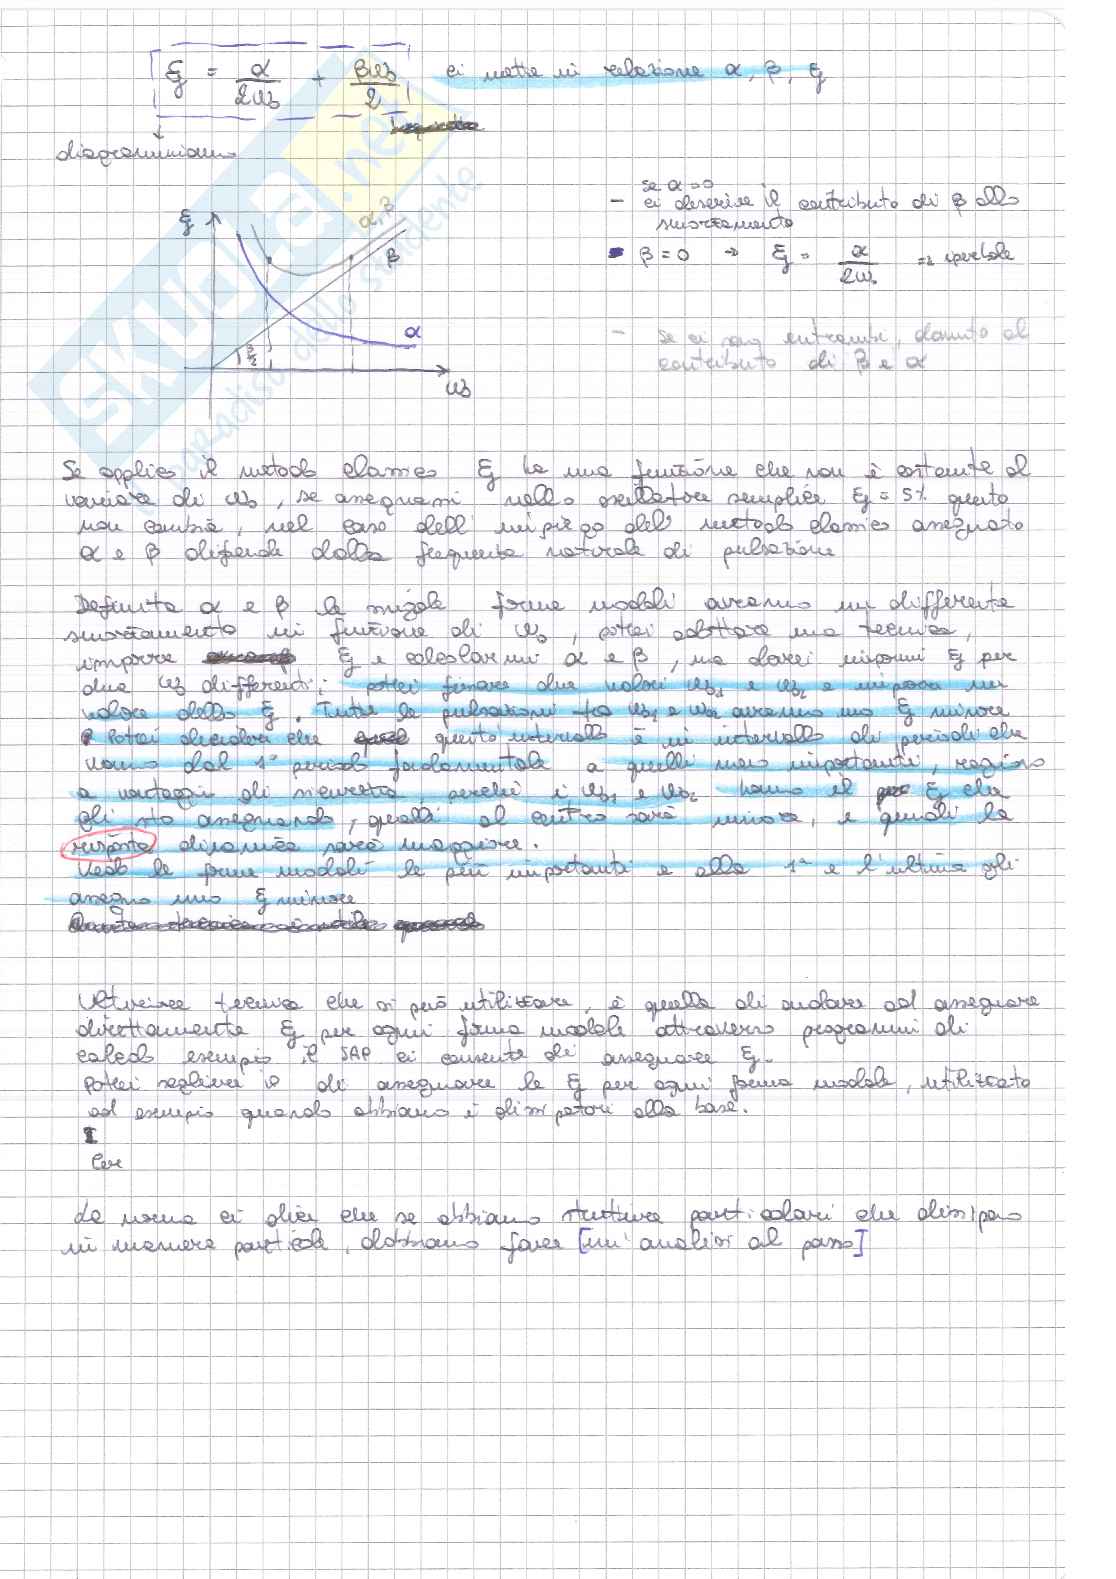 ξ = α/2ω₀ + βω₀/2 ci mette in relazione α, β, ξ
diagrammiamo
se α=0
- ci descrive il contributo di β allo
smorzamento
β = 0 → ξ = α/2ω₀ => iperbole
- se ci sono entrambi, dovuto al
contributo di β e α
ξ
α,β
β
α
β/2
ω₀
SKUOLA.net
paradiso dello studente
Se applico il metodo classico ξ ha una funzione che non è costante al
variare di ω₀, se assegnassi nello oscillatore semplice ξ = 5% questo
non cambia, nel caso dell'impiego del metodo classico assegnato
α e β dipende dalla frequenza naturale di pulsazione
Definita α e β le singole forme modali avranno un differente
smorzamento in funzione di ω₀, potrei adottare una tecnica,
imporre ξ e calcolarmi α e β, ma dovrei impormi ξ per
due ω₀ differenti: potrei fissare due valori ω₀₁ e ω₀₂ e imporre un
valore dello ξ. Tutte le pulsazioni tra ω₀₁ e ω₀₂ avranno uno ξ minore
Potrei decidere che questo intervallo è un intervallo di periodi che
vanno dal 1° periodo fondamentale a quelli meno importanti, ragiono
a vantaggio di sicurezza, perché i ω₀₁ e ω₀₂ hanno il ξ che
gli sto assegnando, quelli al centro sarà minore, e quindi la
risposta dinamica sarà maggiore.
Vedo le forme modali le più importanti e alla 1ª e l'ultima gli
assegno uno ξ minore
Ulteriore tecnica che si può utilizzare, è quella di andare ad assegnare
direttamente ξ per ogni forma modale attraverso programmi di
calcolo esempio il SAP ci consente di assegnare ξ.
Potrei scegliere di assegnare le ξ per ogni forma modale, utilizzato
ad esempio quando abbiamo i dissipatori alla base.
La norma ci dice che se abbiamo strutture particolari che dissipano
in maniera particolare, dobbiamo fare [un'analisi al passo]